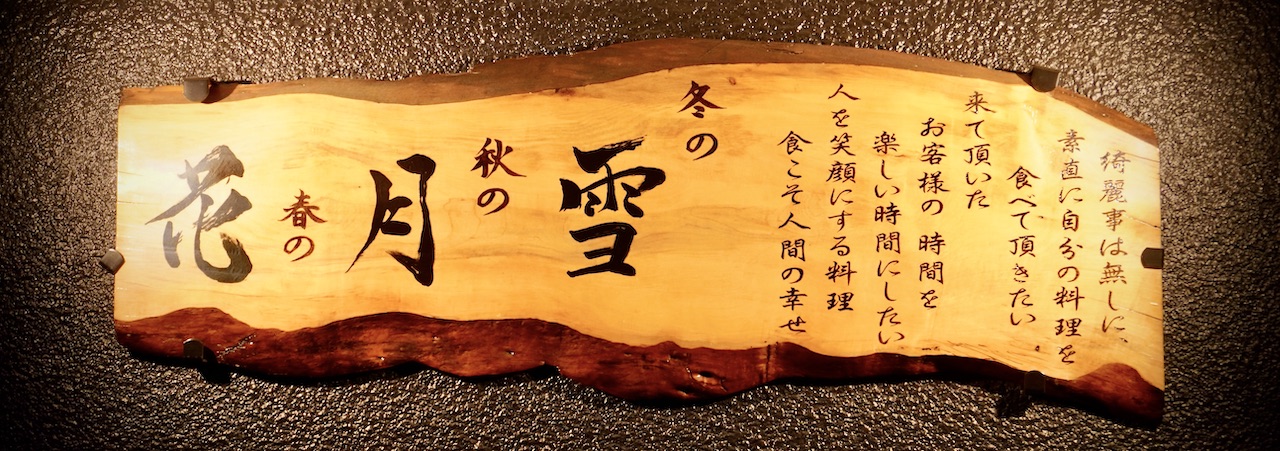 綺麗事は無しに
素直に自分の料理を
食べて頂きたい
来て頂いた
お客様の 時間を
楽しい時間にしたい
人を笑顔にする料理
食こそ人間の幸せ
冬の
雪
秋の
月
春の
花